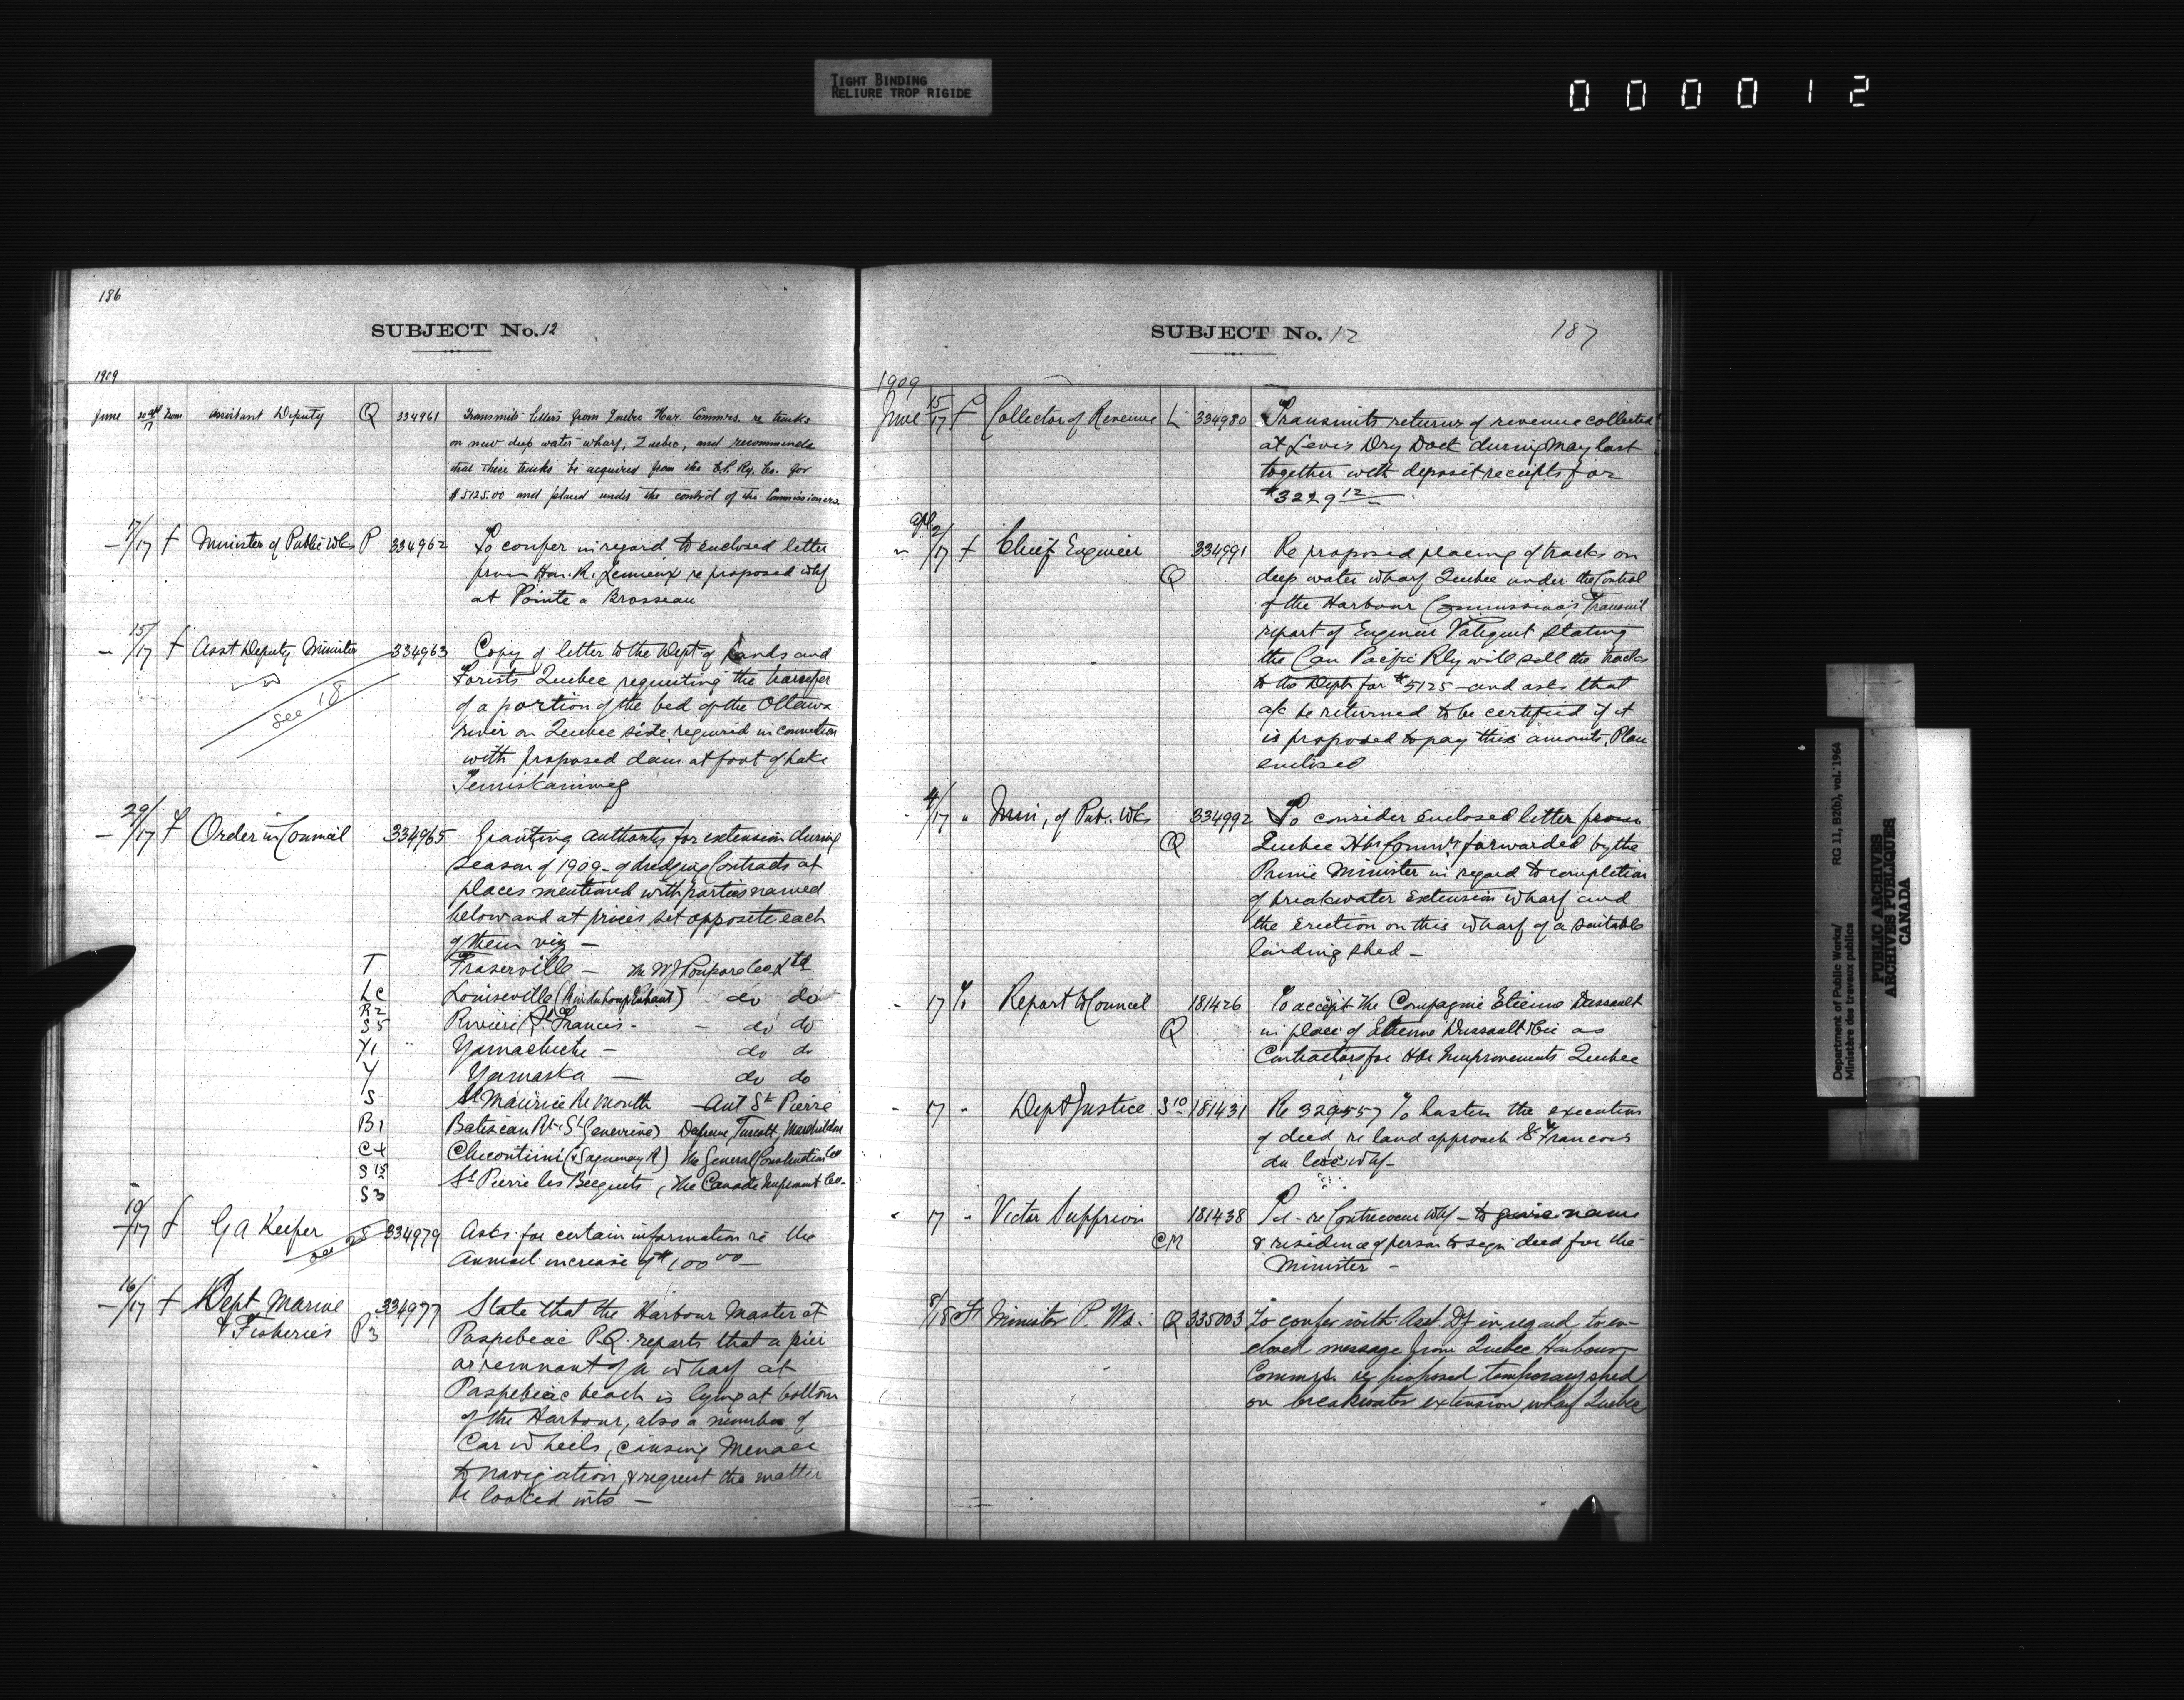 TIGHT BINDING
RELIURE TROP RIGIDE
000012
186
SUBJECT No. 12
1909
June 30 apl/17 From Assistant Deputy Q 334961 Transmits letters from Quebec Har. Commrs. re tracks
on new deep water wharf, Quebec, and recommends
that these tracks be acquired from the C.P. Ry. Co. for
$5125.00 and placed under the control of the Commissioners.
– 7/17 f Minister of Public Wks P 334962 To confer in regard to enclosed letter
from Hon. R. Lemieux re proposed whf
at Pointe a Brosseau
– 15/17 f Asst Deputy Minister 334963 Copy of letter to the Dept of Lands and
see 18
Forists Quebec requesting the transfer
of a portion of the bed of the Ottawa
river on Quebec side, required in connection
with proposed dam at foot of Lake
Temiskaming
– 29/17 f Order in Council 334965 Granting authority for extension during
season of 1909 – of dredging Contracts at
places mentioned with parties named
below and at prices set opposite each
of them viz –
T Fraserville – The WJ Poupore Co Ltd
Lc Louiseville (Riv du Loup Enhaut) – do do
R2
S5 Riviere St Francis – – do do
Y1 Yamachiche – do do
Y Yamaska – do do
S St Maurice R. Mouth – Ant St Pierre
B1 Batiscan R. (Ste Genevieve) Turcott, Marchildon
C4 Chicoutimi (& Saguenay R) The General Construction Co
S15 St Pierre les Becquets, The Canada Improvmt Co –
S3
– 19/17 f G A Keefer 334979 Asks for certain information re the
see 28
Annual increase of $100.00 –
– 16/17 f Dept Marine 334977 State that the Harbour Master at
& Fisheries P3 Paspebiac P.Q. reports that a pier
or remnant of a wharf at
Paspebiac beach is lying at bottom
of the Harbour, also a number of
Car wheels, causing Menace
to navigation, & request the matter
be looked into –
SUBJECT No. 12
187
1909
June 15/17 f Collector of Revenue L 334980 Transmits returns of revenue collected
at Levis Dry Dock during May last
together with deposit receipts for
$3229 12
" apl 2/17 f Chief Engineer 334991 Re proposed placing of tracks on
Q deep water wharf Quebec under the Control
of the Harbour Commissioners Transmit
report of Engineer Valiquet stating
the Can Pacific Rly will sell the tracks
to the Dept for $5125 – and asks that
a/c be returned to be certified if it
is proposed to pay this amount, Plan
enclised
" 4/17 " Min, of Pub. Wks 334992 To consider enclosed letter from
Q Quebec Hbr Commrs forwarded by the
Prime Minister in regard to completion
of breakwater Extension wharf and
the Erection on this wharf of a suitable
landing shed –
- 17 To Report to Council 181426 To accept the Compagnie Etienne Dussault
Q in place of Etienne Dussault & Cie as
Contractors for Hbr Improvements Quebec
- 17 " Dept Justice S10 181431 Re 329557 To hasten the execution
of deed, re land approach St Francois
du Lac whf –
" 17 " Victor 181438 Pel – re Contrecoeur Whf – to give name
CM & residence of person to sign deed for the
Minister –
8/18 Fr Minister P. Ws. Q 335003 To confer with Asst. Dy in regard to en-
closed message from Quebec Harbour
Commrs. re proposed temporary shed
on breakwater extension wharf Quebec
Department of Public Works/ RG 11, B2(b), vol. 1964
Ministère des travaux publics
PUBLIC ARCHIVES
ARCHIVES PUBLIQUES
CANADA